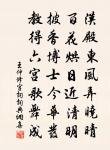 漢殿東風弄曉晴
百花烘日近清明
披香博士今華髮
教得六宮歌舞成
王仲修宮詞